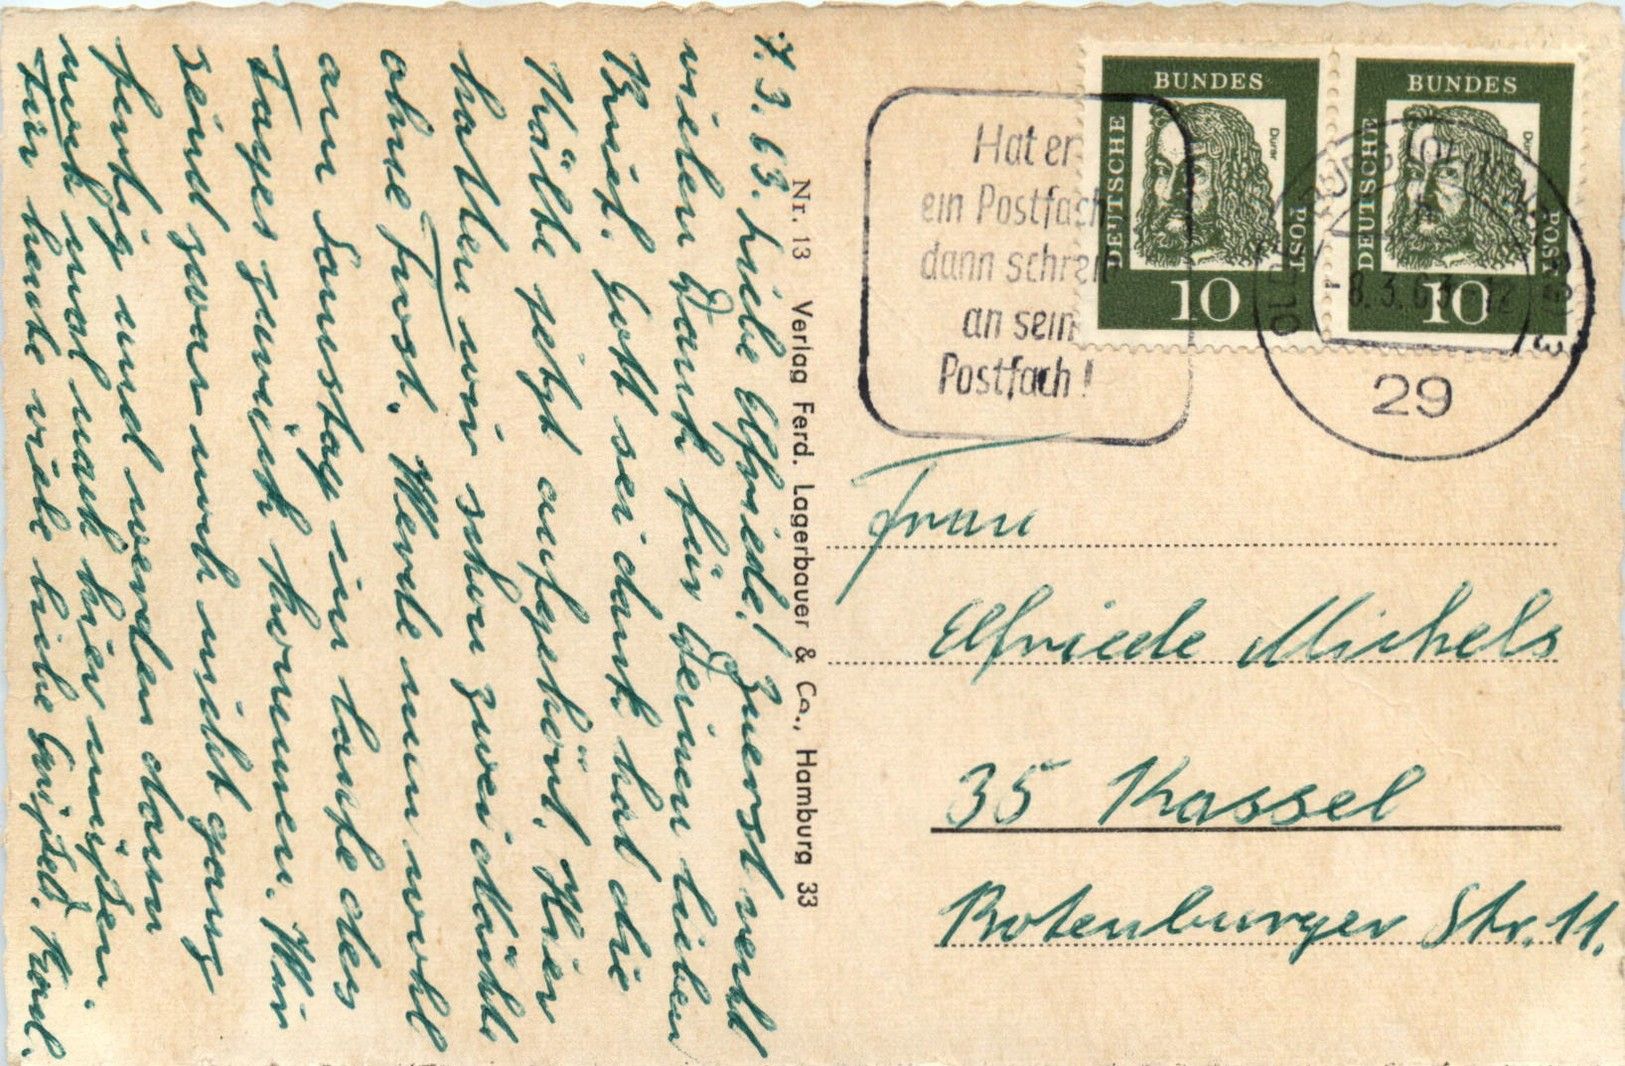 7.3.63. Liebe Elfriede! Zuerst recht
vielen Dank für Deinen lieben
Brief. Gott sei dank hat die
Kälte jetzt aufgehört. Hier
hatten wir schon zwei Nächte
ohne Frost. Werde nun wohl
am Samstag im laufe des
Tages zurück kommen. Wir
seind zwar noch nicht ganz
fertig und werden dann
noch mal nach hier müßen.
Für heute viele liebe Grüße
Nr. 13 Verlag Ferd. Lagerbauer & Co., Hamburg 33
Hat er
ein Postfach
dann schreib
an sein
Postfach!
DEUTSCHE BUNDES POST
Dürer
10
DEUTSCHE BUNDES POST
10
8.3.63-12
29
Frau
Elfriede Michels
35 Kassel
Rotenburger Str. 11.